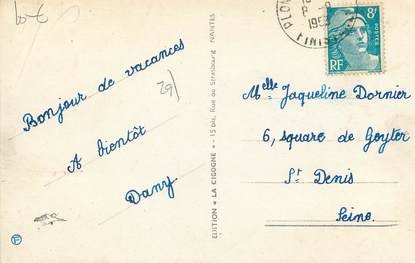 Bonjour de vacances
A bientôt
Dany
29
EDITION « LA CIGOGNE » - 15 bis, Rue de Strasbourg NANTES
PLO
FINIST
8F
POSTES
RF
Melle Jaqueline Dornier
6, square de Geyter
St Denis
Seine.
F